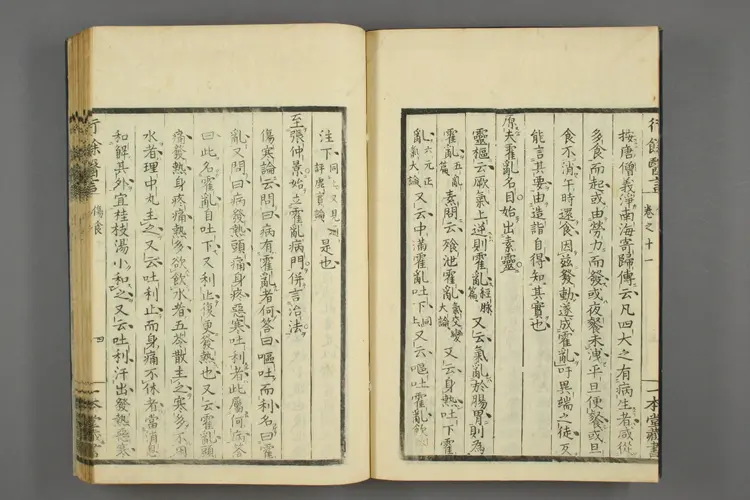 行餘醫言 卷之十一 一本堂藏書
按唐僧義淨南海寄歸傳云凡四大之有病生者咸從
多食而起或由勞力而發或夜飡未洩平旦便飡或旦
食不消午時還食因茲發動遂成霍亂吁異端之徒乃
能言其要由造詣自得知其實也
原夫霍亂名目始出素靈
靈樞云厥氣上逆則霍亂經脈篇又云氣亂於腸胃則爲
霍亂五亂篇素問云飧泄霍亂氣交變大論又云身熱吐下霍
亂六元正氣大論又云中滿霍亂吐下同上又云嘔吐霍亂飲
注下同上又見評虛實論是也
至張仲景始立霍亂病門併言治法
傷寒論云問曰病有霍亂者何答曰嘔吐而利名曰霍
亂又問曰病發熱頭痛身疼惡寒吐利者此屬何病答
曰此名霍亂自吐下又利止復更發熱也又云霍亂頭
痛發熱身疼痛熱多欲飲水者五苓散主之寒多不用
水者理中丸主之又云吐利止而身痛不休者當消息
和解其外宜桂枝湯小和之又云吐利汗出發熱惡寒
行餘醫言 傷食 四 一本堂藏書